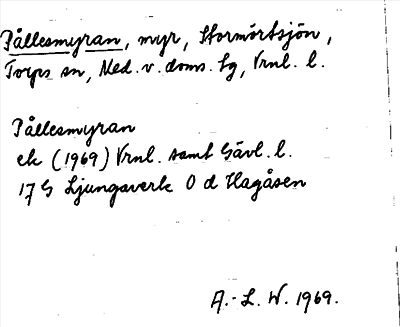 Pållesmyran, myr, Stormörtsjön,
Torps sn, Med. v. doms. tg, Vrnl. l.
Pållesmyran
ek (1969) Vrnl. samt Gävl. l.
17 G Ljungaverk 0 d Hagåsen
A.-L. W. 1969.